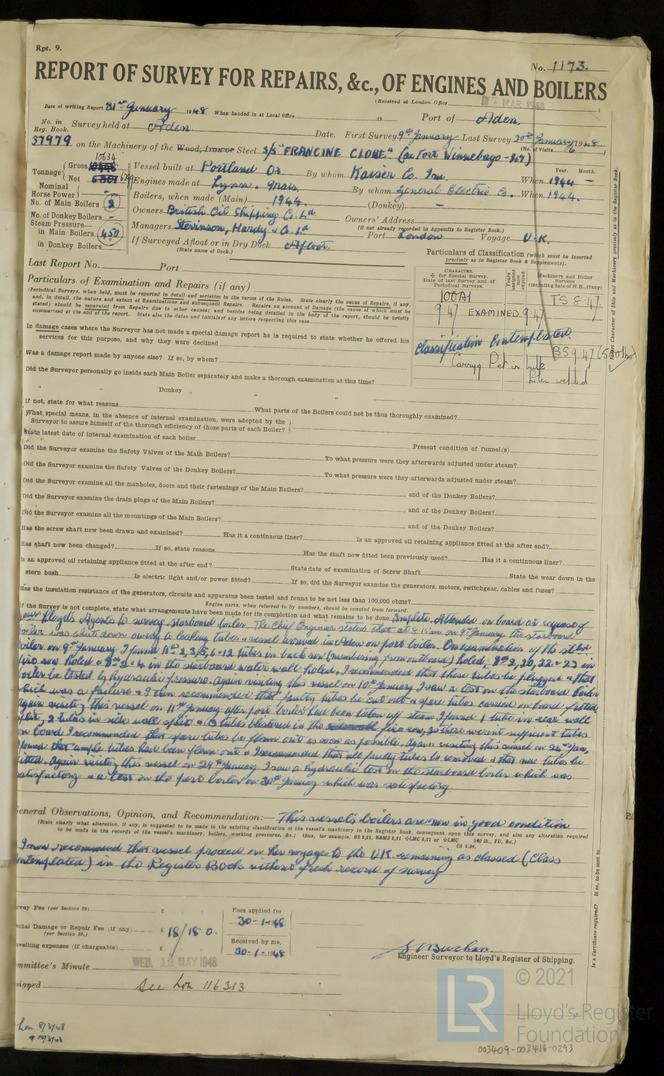 Rpt. 9.
No. 1173.
REPORT OF SURVEY FOR REPAIRS, &c., OF ENGINES AND BOILERS
(Received at London Office MAR 1948 )
Date of writing Report 31st January 1948 When handed in at Local Office 19 Port of Aden.
No. in Reg. Book. Survey held at Aden Date. First Survey 9th January Last Survey 30th January 1948
37979 on the Machinery of the Wood, Iron or Steel S/S "FRANCINE CLORE" (ex Fort Winnebago - 347) (No. of Visits 6)
Tonnage Gross 10634
Vessel built at Portland Or. By whom Kaiser Co. Inc. Year. Month. When 1944 -
Nominal Horse Power
Engines made at Lynn, Mass. By whom General Electric Co. When 1944.
No. of Main Boilers 2 Boilers, when made (Main) 1944. (Donkey) -
No. of Donkey Boilers Owners British Oil Shipping Co. Ld Owners' Address
(if not already recorded in Appendix to Register Book.)
Steam Pressure in Main Boilers 450 Managers Stevinson, Hardy & Co. Ld Port London Voyage U.K.
in Donkey Boilers If Surveyed Afloat or in Dry Dock Afloat
(State name of Dock.)
Last Report No. Port
Particulars of Classification (which must be inserted precisely as in Register Book & Supplements).
Particulars of Examination and Repairs (if any)
CHARACTER. For Special Survey. Date of last Survey and of Periodical Surveys.
Machinery and Boiler Surveys (including date of N.B., if any)
100A1
TS 8.47
9.47 EXAMINED 9.47
Classification Contemplated
BS 9.47 (500 lbs)
Carryg Pet in bulk
Elec welded
In damage cases where the Surveyor has not made a special damage report he is required to state whether he offered his services for this purpose, and why they were declined
Was a damage report made by anyone else? If so, by whom?
Did the Surveyor personally go inside each Main Boiler separately and make a thorough examination at this time?
" " Donkey " " "
If not, state for what reasons What parts of the Boilers could not be thus thoroughly examined?
What special means, in the absence of internal examination, were adopted by the Surveyor to assure himself of the thorough efficiency of those parts of each Boiler?
State latest date of internal examination of each boiler Present condition of funnel(s)
Did the Surveyor examine the Safety Valves of the Main Boilers? To what pressure were they afterwards adjusted under steam?
Did the Surveyor examine the Safety Valves of the Donkey Boilers? To what pressure were they afterwards adjusted under steam?
Did the Surveyor examine all the manholes, doors and their fastenings of the Main Boilers? and of the Donkey Boilers?
Did the Surveyor examine the drain plugs of the Main Boilers? and of the Donkey Boilers?
Did the Surveyor examine all the mountings of the Main Boilers? and of the Donkey Boilers?
Has the screw shaft now been drawn and examined? Has it a continuous liner? Is an approved oil retaining appliance fitted at the after end?
Has shaft now been changed? If so, state reasons Has the shaft now fitted been previously used? Has it a continuous liner?
Is an approved oil retaining appliance fitted at the after end? State date of examination of Screw Shaft State the wear down in the
stern bush Is electric light and/or power fitted? If so, did the Surveyor examine the generators, motors, switchgear, cables and fuses?
Has the insulation resistance of the generators, circuits and apparatus been tested and found to be not less than 100,000 ohms?
Engine parts, when referred to by numbers, should be counted from forward.
If the Survey is not complete, state what arrangements have been made for its completion and what remains to be done. Complete. Attended on board at request of
your Lloyd's Agents to survey starboard boiler. The Chief Engineer stated that at 8.15 am on 8th January the starboard
boiler was shut down owing to leaking tubes & vessel arrived in Aden on port boiler. On examination of the stbd
boiler on 9th January I found No 2,3,5,6 & 12 tubes in back row (numbering from outboard) holed, No 2, 20, 22 & 23 in
fire row holed & No 2 & 4 in the starboard water wall holed, I recommended that these tubes be plugged & that
boiler be tested by hydraulic pressure. Again visiting this vessel on 10th January I saw a test on the starboard boiler
which was a failure & I then recommended that faulty tubes be cut out & spare tubes carried on board fitted
Again visiting this vessel on 11th January after port boiler had been taken off steam I found 1 tube in rear wall
split, 2 tubes in side wall split & 13 tubes blistered in the fire row, as there weren't sufficient tubes
on board I recommended that spare tubes be flown out as soon as possible. Again visiting this vessel on 24th Jan.
found that ample tubes had been flown out & I recommended that all faulty tubes be removed & that new tubes be
fitted. Again visiting this vessel on 29th January I saw a hydraulic test on the starboard boiler which was
satisfactory & a test on the port boiler on 30th January which was satisfactory.
General Observations, Opinion, and Recommendation:— This vessel's boilers are now in good condition
(State clearly what alteration, if any, is suggested to be made in the existing classification of the vessel's machinery in the Register Book, consequent upon this survey, and also any alteration required to be made in the records of the vessel's machinery, boilers, working pressures, &c.;
I now recommend that vessel proceed on her voyage to the U.K. remaining as classed (class
contemplated) in the Register Book without fresh record of survey
Survey Fee (per Section 29) £
Fees applied for
30-1-48
Special Damage or Repair Fee (if any) (per Section 29.) £ 18/18 0.
Received by me,
30-1-48
Travelling expenses (if chargeable) £
Engineer Surveyor to Lloyd's Register of Shipping.
Committee's Minute
WED. 19 MAY 1948
Assigned See Lon 116313
Is a Certificate required? If so, to be sent to
© 2021
LR
Lloyd's Register
Foundation
003409-003416-0293